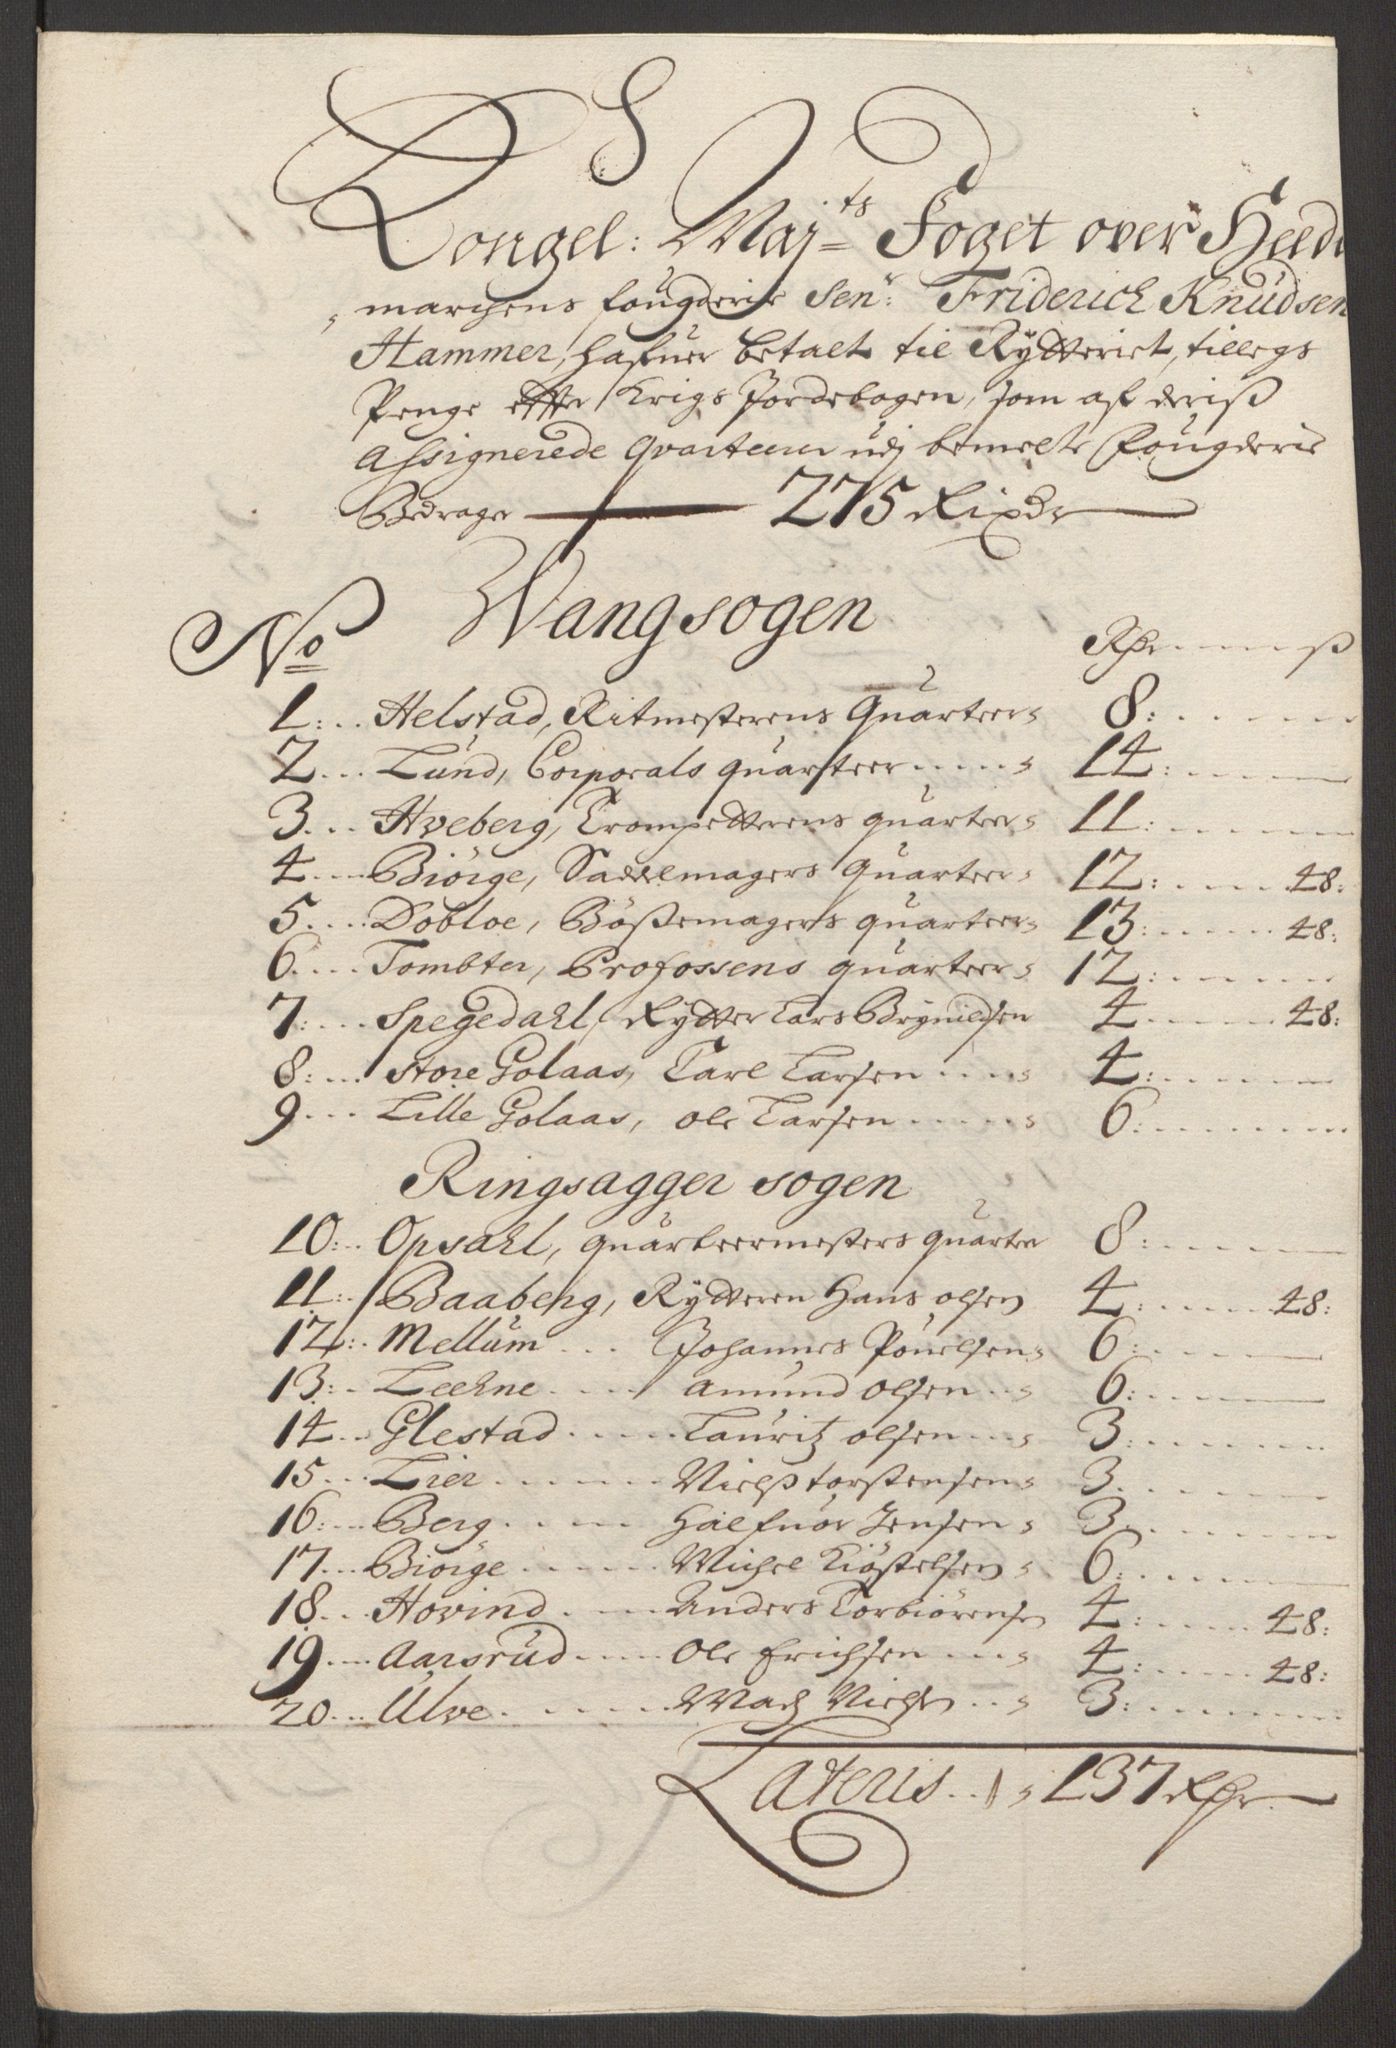 Kongel: Maj^ts Foget over Heed
marchens fougderie Sen^r: Friderich Knudsen
Hammer, hafuer betalt til Rytteriet, tillegs
Penge effter Krigs Jordebogen, som af deriß
Assignerede Qvarteerer udj bemelte Fougderie
Bedrager 275 Rixdr
Wangsogen
No Rdr ß
1: Helstad, Ritmesterens Quarteer 8:
2 Lund, Corporals quarteer 14:
3 Hveberg, Trompetterens quarteer 11:
4 Biörge, Saddelmagers Quarteer 12: 48:
5 Dobloe, Bößemagers quarteer 13: 48:
6 Tombter, Profossens quarteer 12:
7: Spegedahl, Rytter Lars Brynildsen 4 48:
8: Store Golaas, Carl Larsen 4:
9 Lille Golaas, Ole Larsen 6:
Ringsagger sogen
10: Opsahl, quarteermesters quarteer 8:
11: Baaberg, Rytteren Hans olsen 4: 48:
12: Mellum Johannes Pouelsen 6:
13: Leehne Amund olsen 6:
14 Glestad Lauritz olsen 3:
15 Lier Nielß torstensen 3
16: Berg Halfuor Jensen 3
17 Biörge Michel Kiöstelsen 6:
18 Hovind Anders Torbiörensen 4: 48:
19 Aarsrud Ole Erichsen 4: 48:
20 Ulve Madz Nielsen 3:
Lateris 137 Rdr